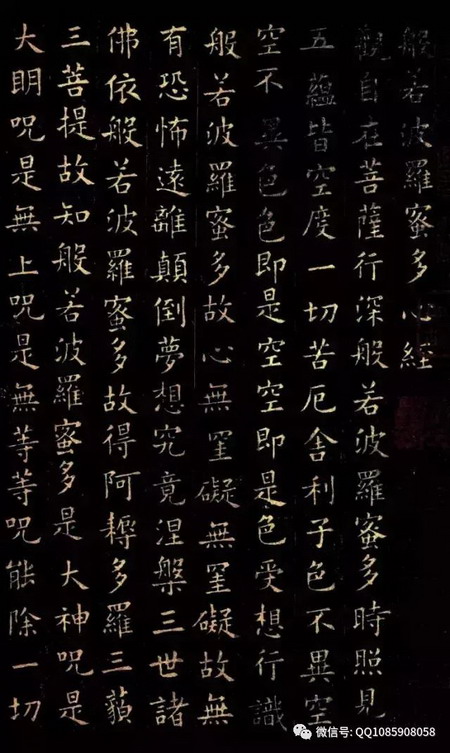 般若波羅蜜多心經
觀自在菩薩行深般若波羅蜜多時照見
五蘊皆空度一切苦厄舍利子色不異空
空不異色色即是空空即是色受想行識
般若波羅蜜多故心無罣礙無罣礙故無
有恐怖遠離顛倒夢想究竟涅槃三世諸
佛依般若波羅蜜多故得阿耨多羅三藐
三菩提故知般若波羅蜜多是大神呪是
大明呪是無上呪是無等等呪能除一切
微信号: QQ1085908058